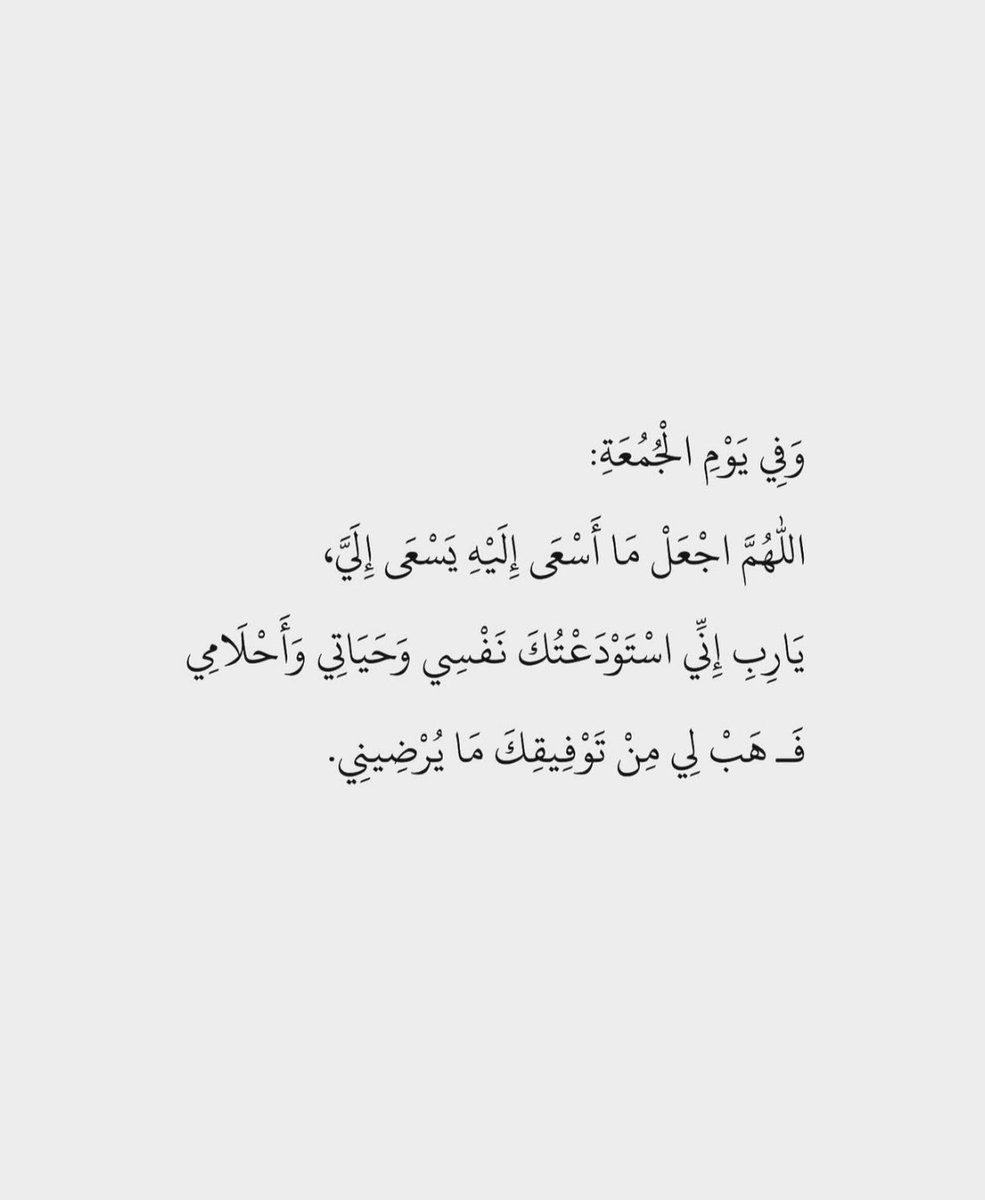 وَفِي يَوْمِ الْجُمُعَةِ:
اللّٰهُمَّ اجْعَلْ مَا أَسْعَى إِلَيْهِ يَسْعَى إِلَيَّ،
يَارِبِ إِنِّي اسْتَوْدَعْتُكَ نَفْسِي وَحَيَاتِي وَأَحْلَامِي
فَـ هَبْ لِي مِنْ تَوْفِيقِكَ مَا يُرْضِينِي.